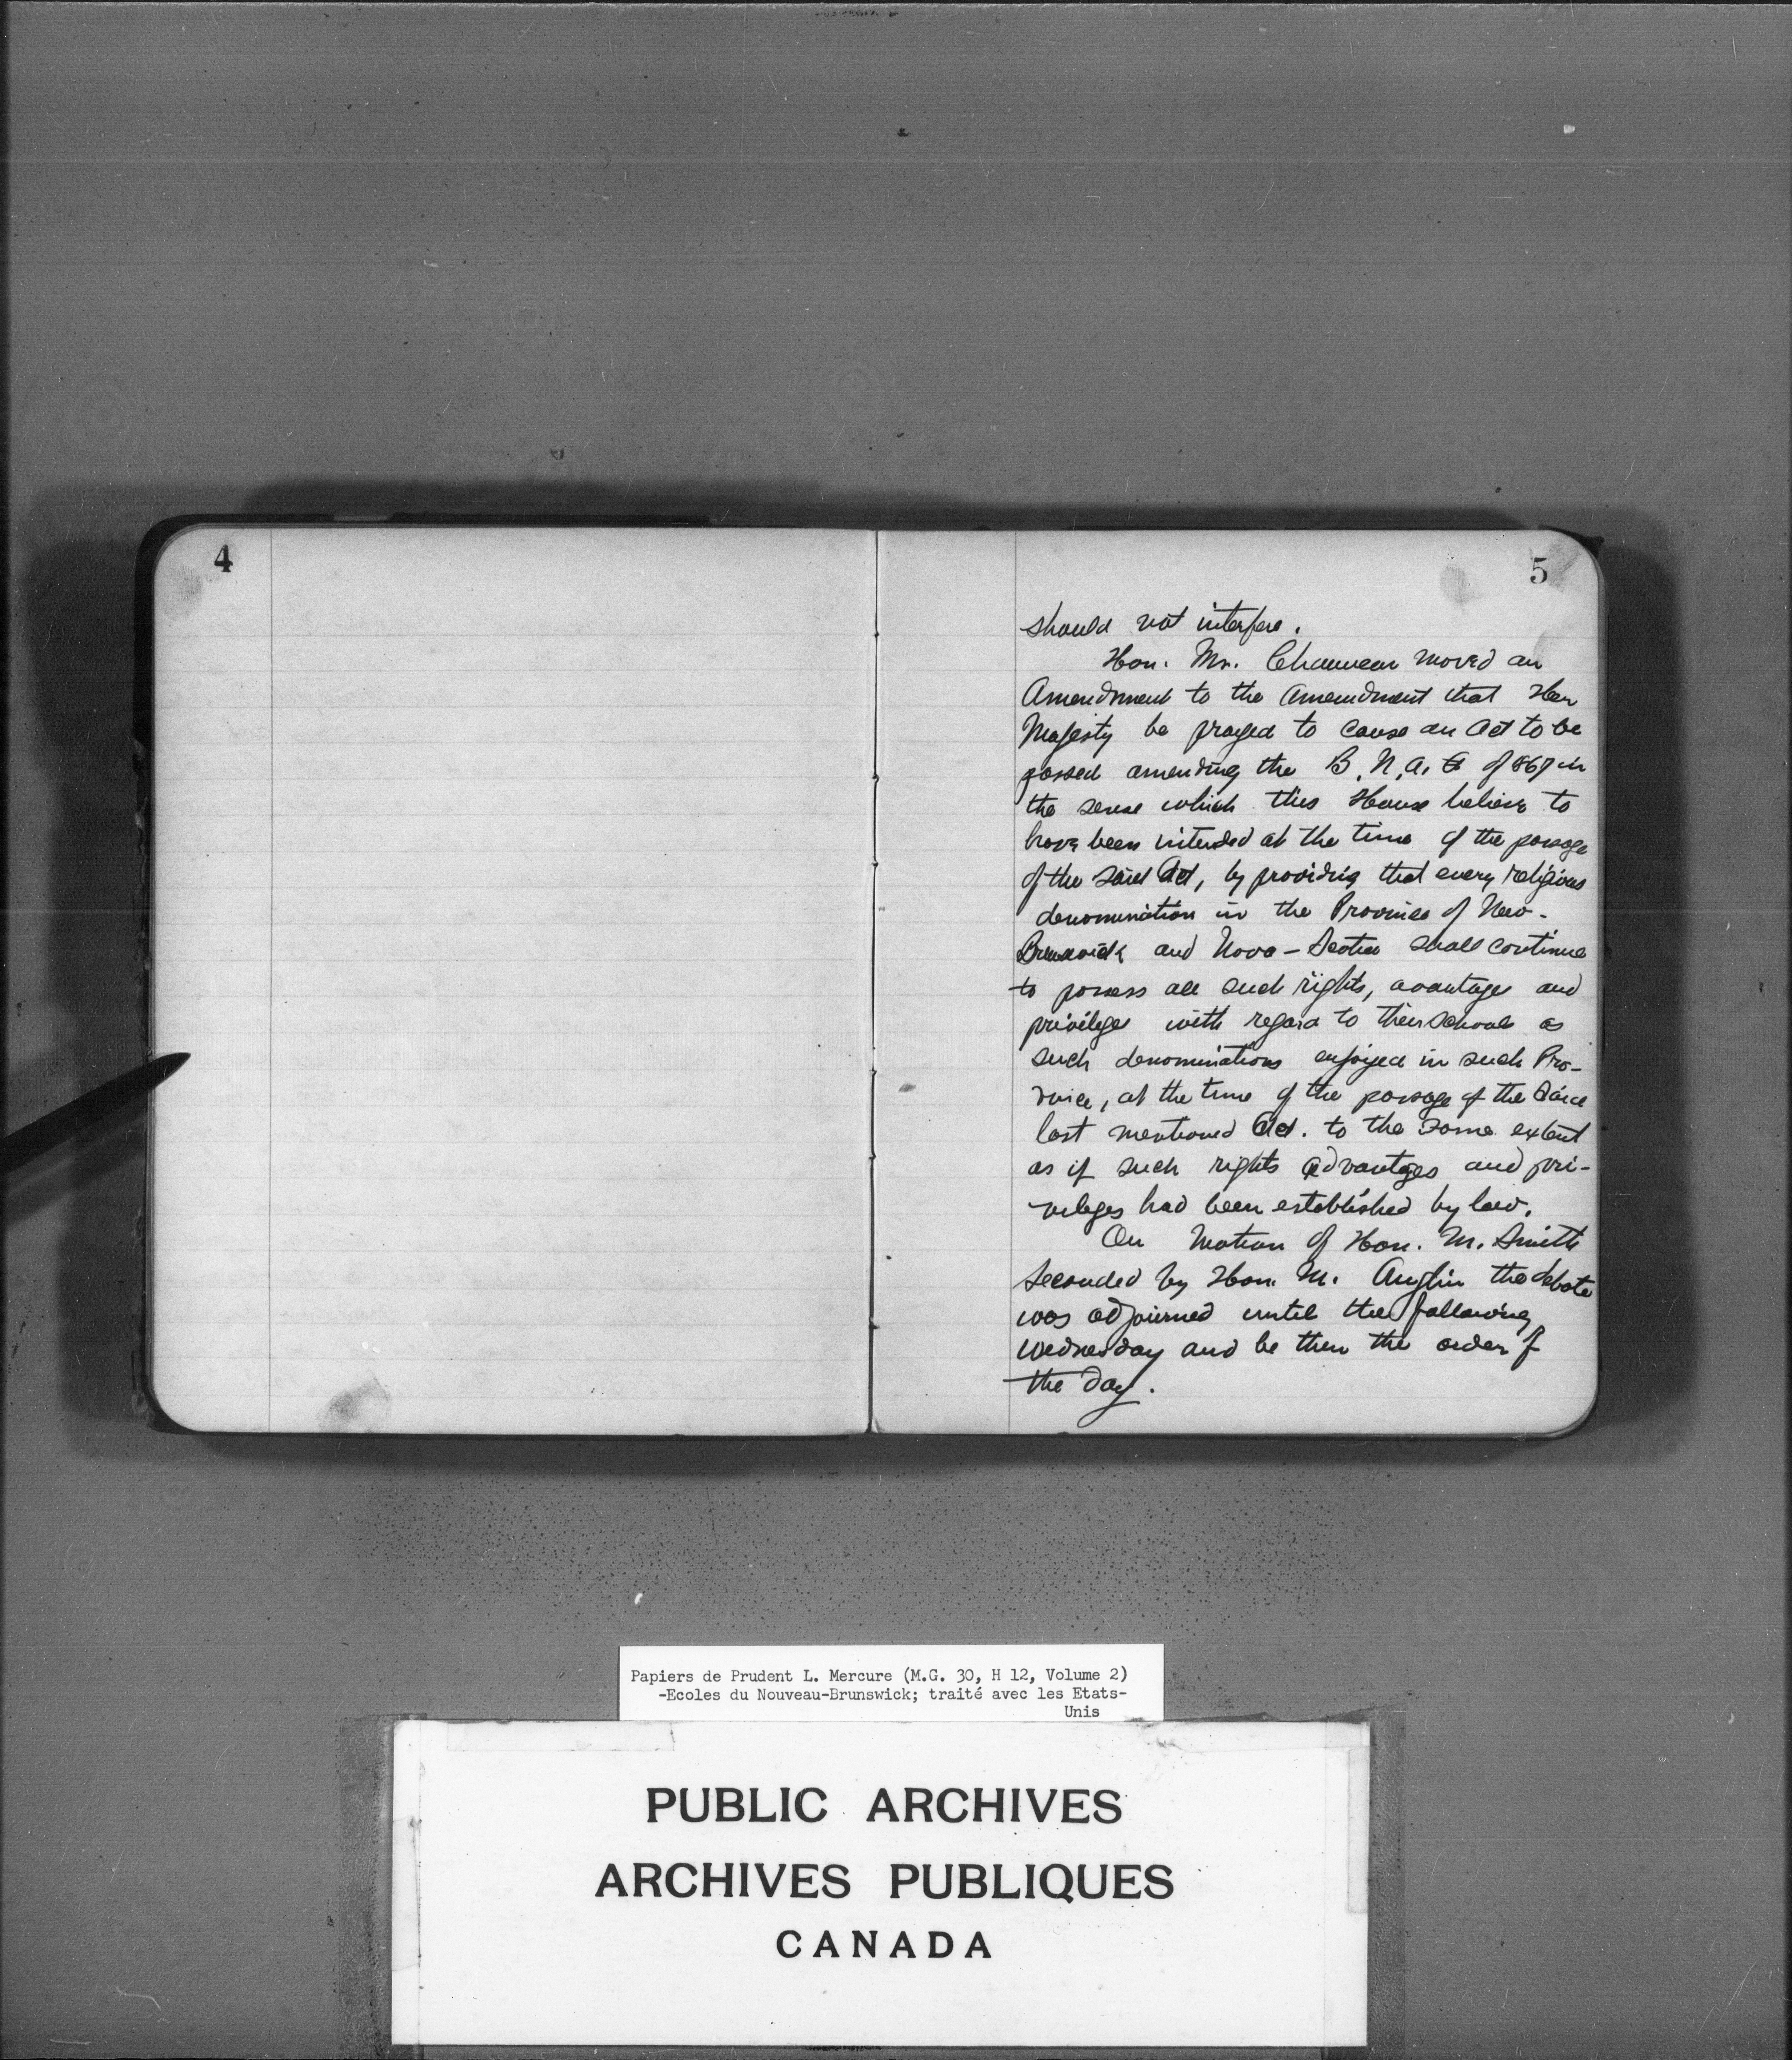 4
5
should not interfere.
Hon. Mr. Chauveau moved an
Amendment to the Amendment that Her
Majesty be prayed to cause an Act to be
passed amending the B. N. A. of 867 in
the sense which this House believe to
have been intended at the time of the passage
of the said Act, by providing that every religious
denomination in the Province of New-
Brunswick and Nova-Scotia shall continue
to possess all such rights, avantages and
privileges with regard to their schools as
such denominations enjoyed in such Pro-
vince, at the time of the passage of the said
last mentioned Act. to the same extent
as if such rights advantages and pri-
vileges had been established by law.
On Motion of Hon. M. Smith
Seconded by Hon. M. Anglin the debate
was adjourned until the following
Wednesday and be then the order of
the day.
Papiers de Prudent L. Mercure (M.G. 30, H 12, Volume 2)
-Ecoles du Nouveau-Brunswick; traité avec les Etats-
Unis
PUBLIC ARCHIVES
ARCHIVES PUBLIQUES
CANADA